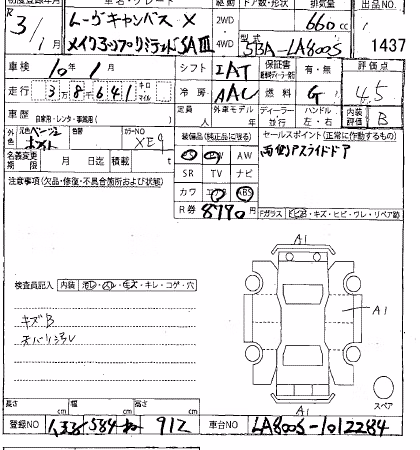 初度登録年月 車名・グレード 駆動 ドア数・形状 排気量 出品NO
R 3/1月 ムーヴキャンバス X 2WD 660cc
メイクアップリミテッド SAⅢ 4WD 型式 5BA-LA800S 1437
車検 10年1月 シフト IAT 保証書 有・無 評価点
走行 3万8千641 キロ マイル 冷房 AAC 燃料 G 4.5
車歴 自家用・レンタ・事業用( ) 定員 人 外車モデル 年 ディーラー・並行 ハンドル 左・右 内装評価 B
外色 ベージュ 色替 カラーNO XE9 装備品(純正品に限る) セールスポイント(正常に作動するもの)
名義変更期限 月 日迄 積載( )t PW 両側パワスライドドア
注意事項(欠品・修復・不具合箇所および状態) SR TV ナビ
カワ エアB ABS
R券 8790円 Fガラス ヒビ・キズ・ヒビ・ワレ・リペア跡
A1
検査員記入 内装 キレ・コゲ・穴
キズB
A1
A1
スペア
長さ cm 幅 cm 高さ cm
登録NO 584 912 車台NO LA800S-1012284